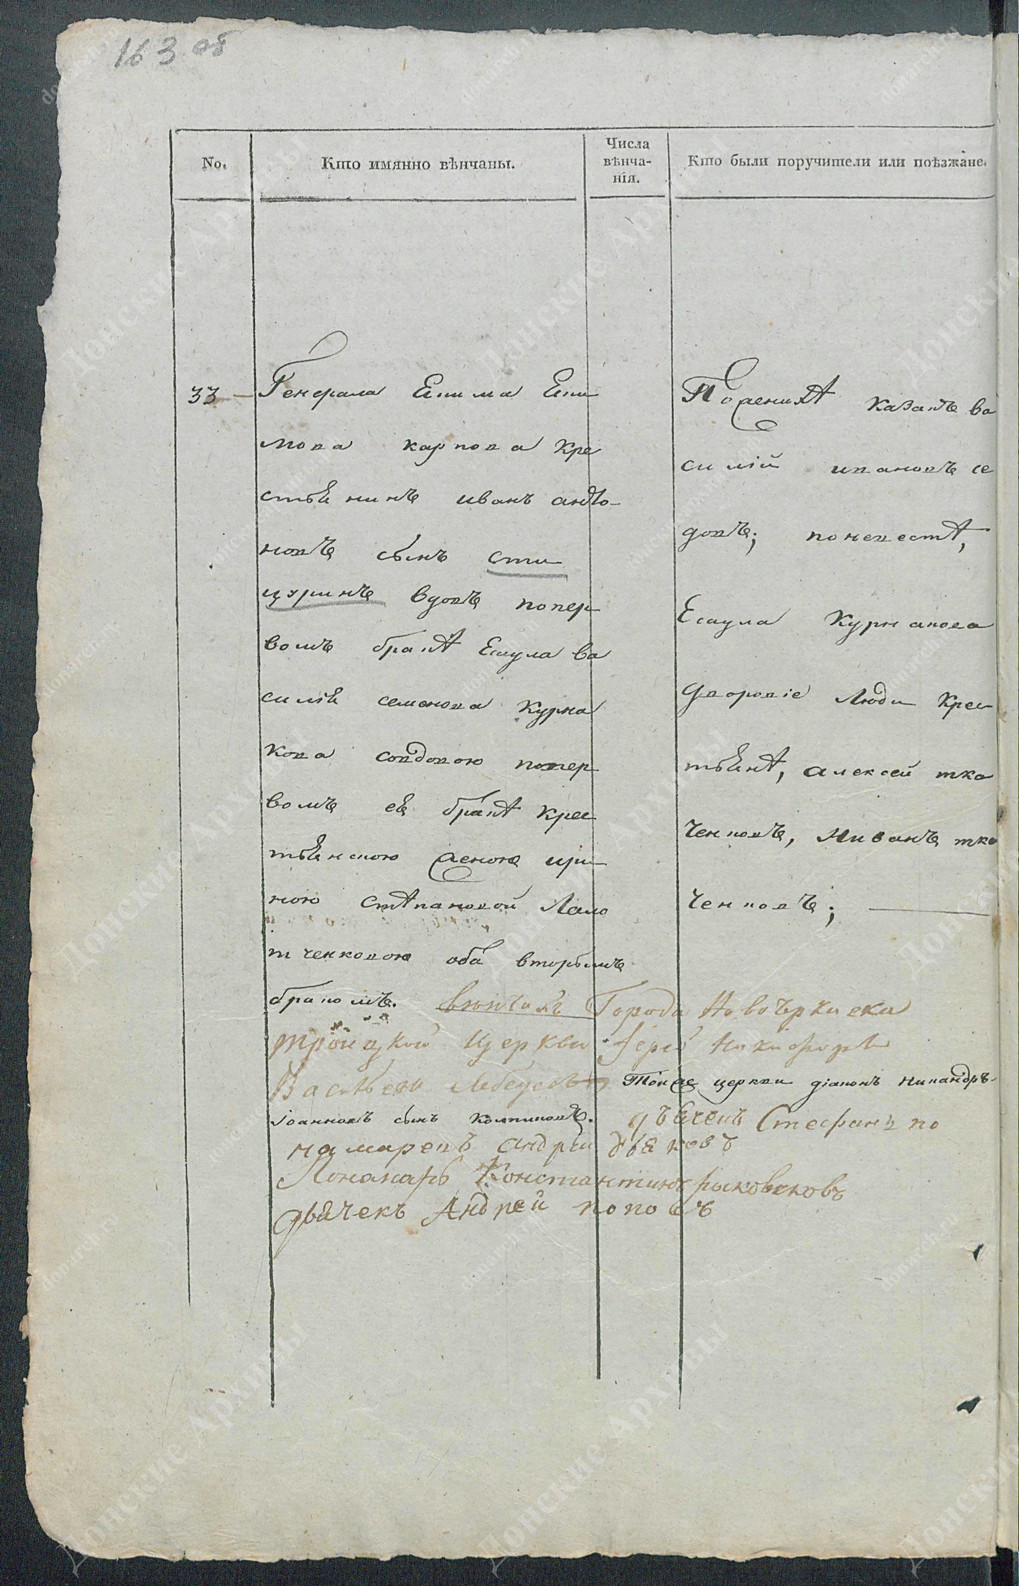 163 об
No.
Кто имянно вѣнчаны.
Числа
вѣнча-
нія.
Кто были поручители или поѣзжане.
33
Генерала Акима Аки
мова карпова кре
стьянинъ иванъ анто-
новъ сынъ сти
цуринъ вдовъ попер
вомъ бракѣ Есаула ва
силія семенова Курна
кова совдовою попер
вомъ ея бракѣ крес
тьянскою женою ири
ною Стѣпановой Лапо
тченковою оба вторымъ
бракомъ.
Поженихѣ казакъ ва
силій ивановъ се
довъ; поневестѣ,
Есаула Курнакова
дворовіе Люди Крес
тьянѣ, алексей тка
ченковъ, Ииванъ тка
ченковъ;
вѣнчалъ Города Новочеркаска
троицкой Церкви Іерей Никифоръ
Васильевъ Лебедевъ
Тойже церкви діаконъ Никаноръ
іоанновъ сынъ
дьячекъ Стефанъ по
намаревъ андрей дьяковъ
Пономарь Константинъ
дьячекъ Андрей поповъ